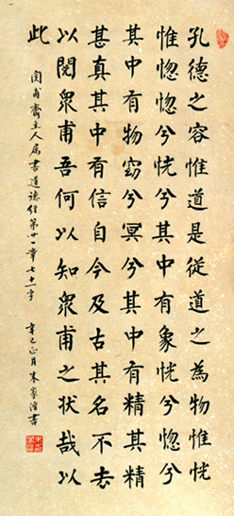 孔德之容惟道是從道之為物惟恍
惟惚惚兮恍兮其中有象恍兮惚兮
其中有物窈兮冥兮其中有精其精
甚真其中有信自今及古其名不去
以閱眾甫吾何以知眾甫之狀哉以
此
閱甫齋主人屬書道德經第廿一章七十一字
辛巳正月朱家溍書